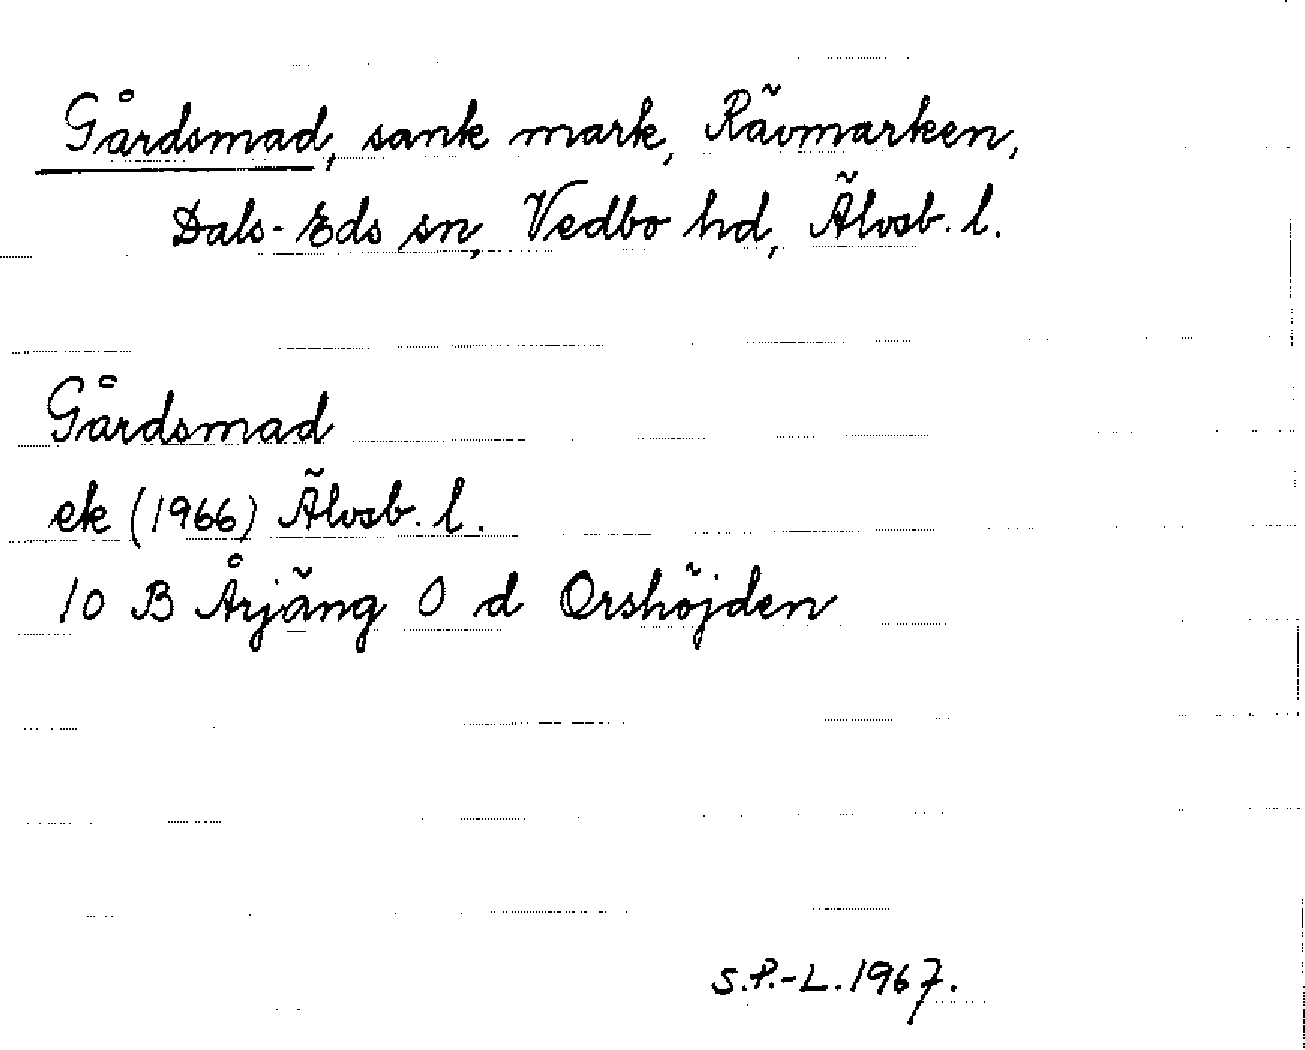 Gårdsmad, sank mark, Rävmarken,
Dals-Eds sn, Vedbo hd, Älvsb. l.
Gårdsmad
ek (1966) Älvsb. l.
10 B Årjäng 0 d Orshöjden
S.P.-L. 1967.